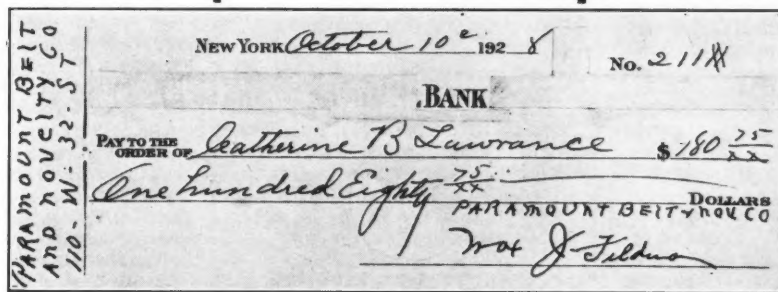 PARAMOUNT BELT
AND NOVELTY CO
110 - W. 32. ST
NEW YORK October 10 1928
No. 211
BANK
PAY TO THE
ORDER OF Catherine B Lawrance $ 180 75/xx
One hundred Eighty 75/xx DOLLARS
PARAMOUNT BELT & NOV. CO
Max J Feldman